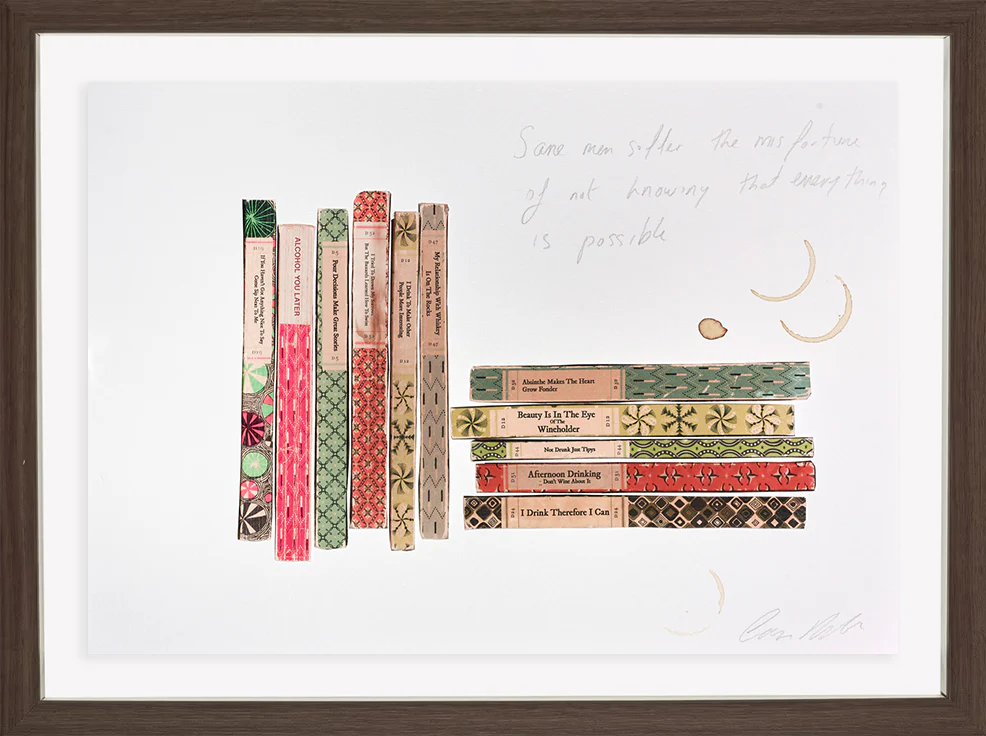 Some men suffer the misfortune
of not knowing that everything
is possible
If You Haven't Got Anything Nice To Say
Come Sit Next To Me
ALCOHOL YOU LATER
D5
Poor Decisions Make Great Stories
D5
I Tried To Drown My Sorrows
But The Bastards Learned How To Swim
I Drink To Make Other
People More Interesting
D47
My Relationship With Whiskey
Is On The Rocks
D47
Absinthe Makes The Heart
Grow Fonder
Beauty Is In The Eye
Of The
Wineholder
Not Drunk Just Tipsy
Afternoon Drinking
Don't Wine About It
I Drink Therefore I Can